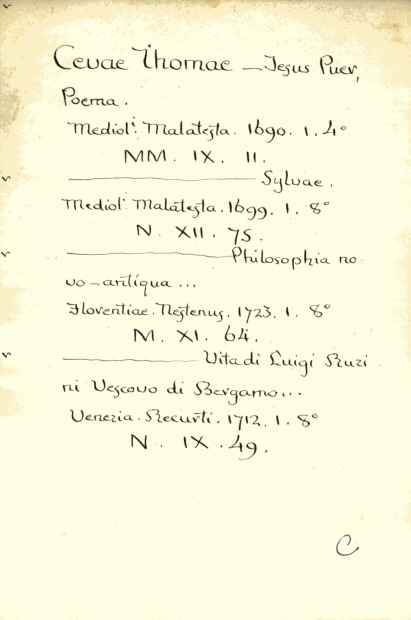 Cevae Thomae — Jesus Puer,
Poema.
Mediol: Malatesta. 1690. 1. 4°
MM. IX. 11.
——— Sylvae.
Mediol: Malatesta. 1699. 1. 8°
N. XII. 75.
——— Philosophia no-
vo-antiqua ...
Florentiae. Nestenus. 1723. 1. 8°
M. XI. 64.
——— Vita di Luigi Ruzi
ni Vescovo di Bergamo...
Venezia. Recurti. 1712. 1. 8°
N. IX. 49.
C